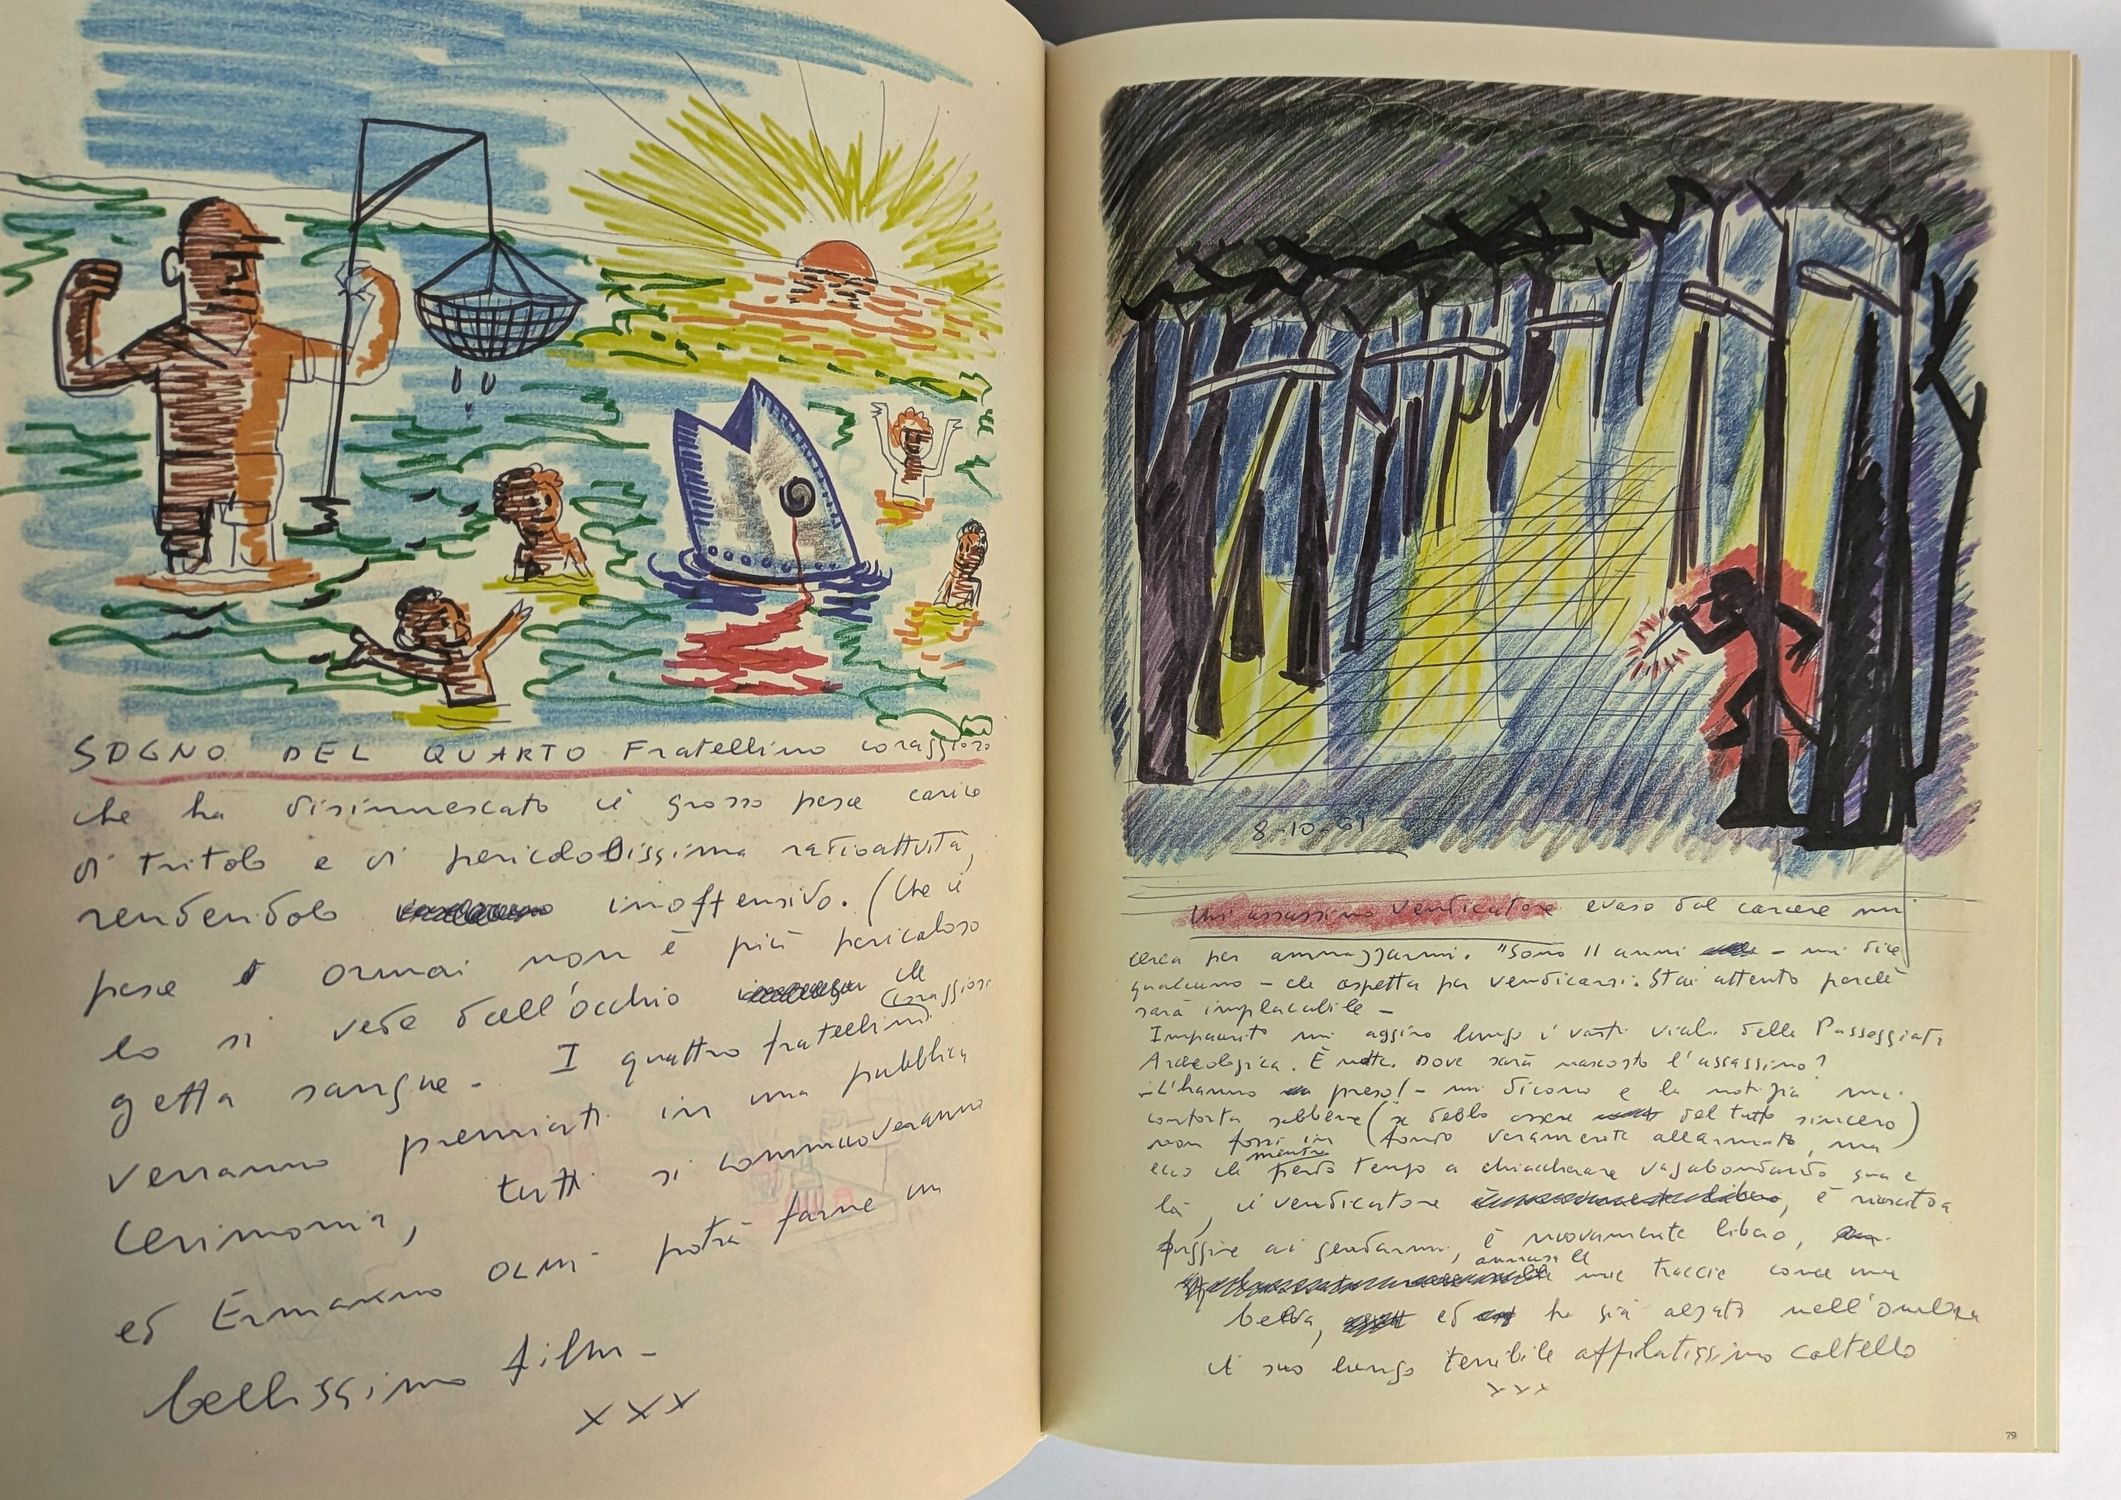 SOGNO DEL QUARTO Fratellino coraggioso
che ha disinnescato il grosso pesce carico
di tritolo e di pericolosissima radioattività,
rendendolo inoffensivo. (Che il
pesce ormai non è più pericoloso
lo si vede dall'occhio che
getta sangue - I quattro fratellini coraggiosi
verranno premiati in una pubblica
cerimonia, tutti si commuoveranno
ed Ermanno OLMI potrà farne un
bellissimo film -
x x x
8-10-61
Un assassino vendicatore evaso dal carcere mi
cerca per ammazzarmi. "Sono 11 anni - mi dice
qualcuno - che aspetta per vendicarsi. Stai attento perchè
sarà implacabile -
Impaurito mi aggiro lungo i vasti viali della Passeggiata
Archeologica. È notte. Dove sarà nascosto l'assassino?
- L'hanno preso! - mi dicono e la notizia mi
conforta sebbene (se debbo essere del tutto sincero)
non fossi in fondo veramente allarmato, ma
ecco che mentre perdo tempo a chiacchierare vagabondando qua e
là, il vendicatore è riuscito a
fuggire ai gendarmi, è nuovamente libero,
annusa le mie traccie come una
belva, ed ha già alzato nell'ombra
il suo lungo terribile affilatissimo coltello
x x x
79